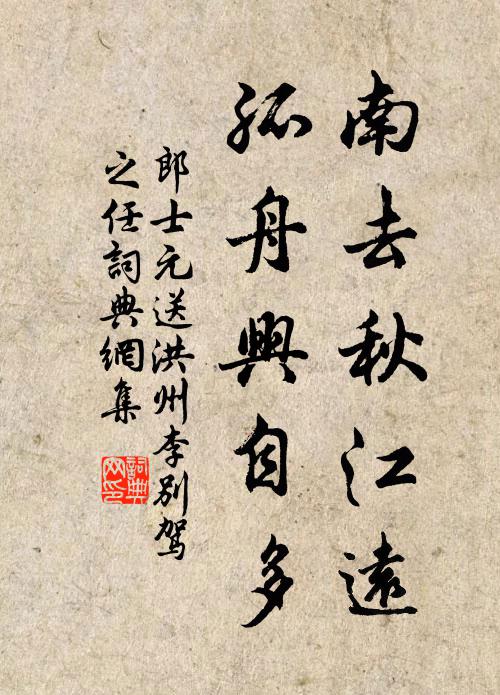 南去秋江遠
孤舟興自多
郎士元送洪州李別駕
之任詞典網集
詞典
网印